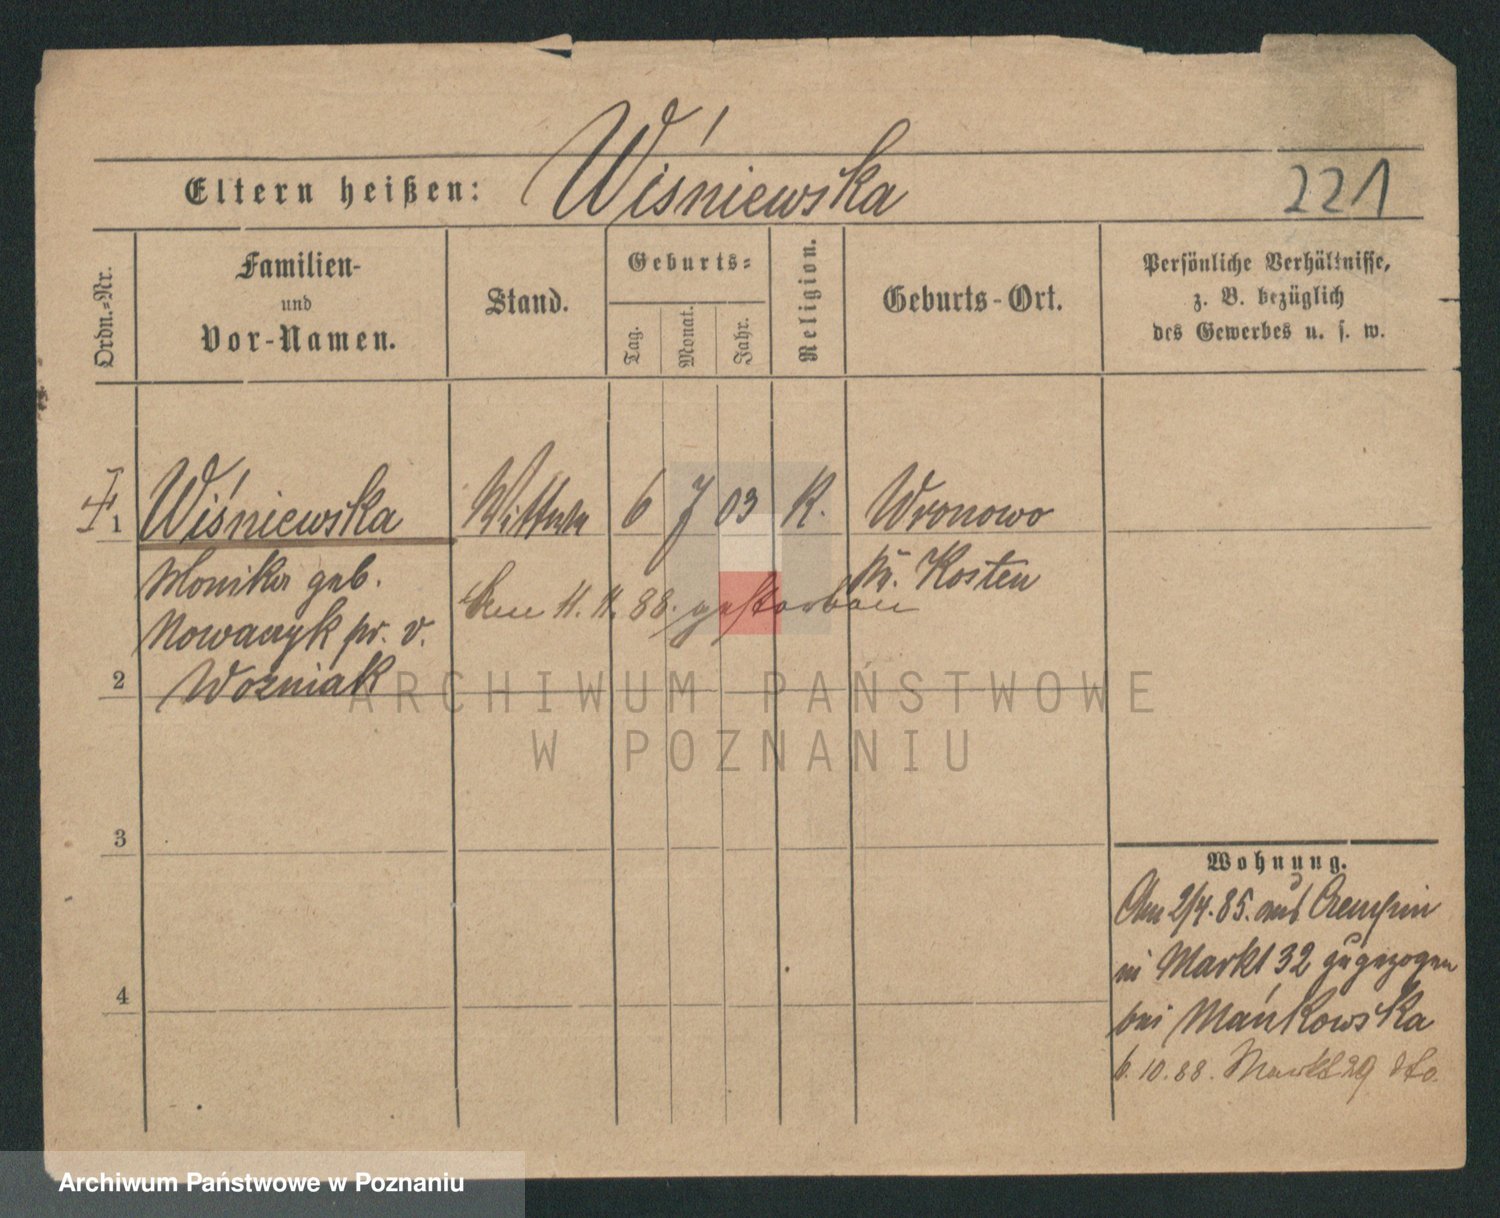 Wiśniewska
Eltern heißen:
221
Ordn.-Nr.
Familien-
und
Vor-Namen.
Stand.
Geburts-
Tag.
Monat.
Jahr.
Religion.
Geburts-Ort.
Persönliche Verhältnisse,
z. B. bezüglich
des Gewerbes u. s. w.
1
Wiśniewska
Wittwe
6
7
03
K.
Wronowo
Monika geb.
Kr. Kosten
Am 11. 11. 88. gestorben
Nowaczyk pr. v.
2
Woźniak
ARCHIWUM PAŃSTWOWE
W POZNANIU
3
Wohnung.
Am 2/4. 85. aus Czempin
in Markt 32 zugezogen
4
bei Mańkowska
6. 10. 88. Markt 29 dto.
Archiwum Państwowe w Poznaniu